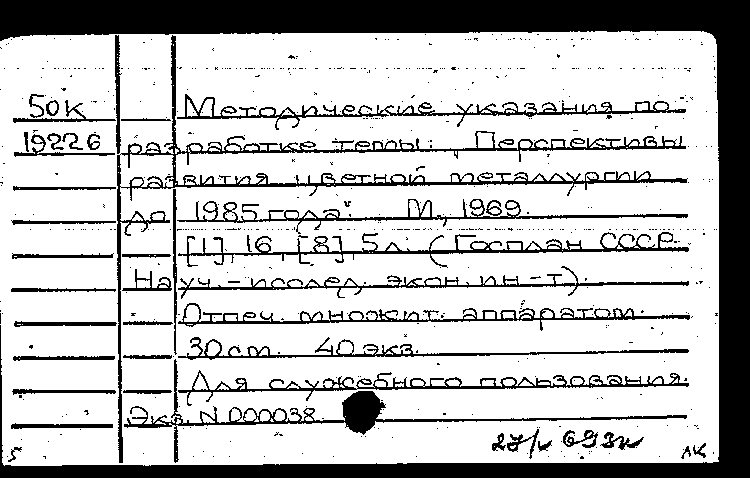 50к Методические указания по
19226 разработке темы: „Перспективы
развития цветной металлургии
до 1985 года". М., 1969.
[1], 16, [8], 5 л. (Госплан СССР.
Науч.-исслед. экон. ин-т).
Отпеч. множит. аппаратом.
30 см. 40 экз.
Для служебного пользования.
Экз. N 000038.
693к
5 ЛК